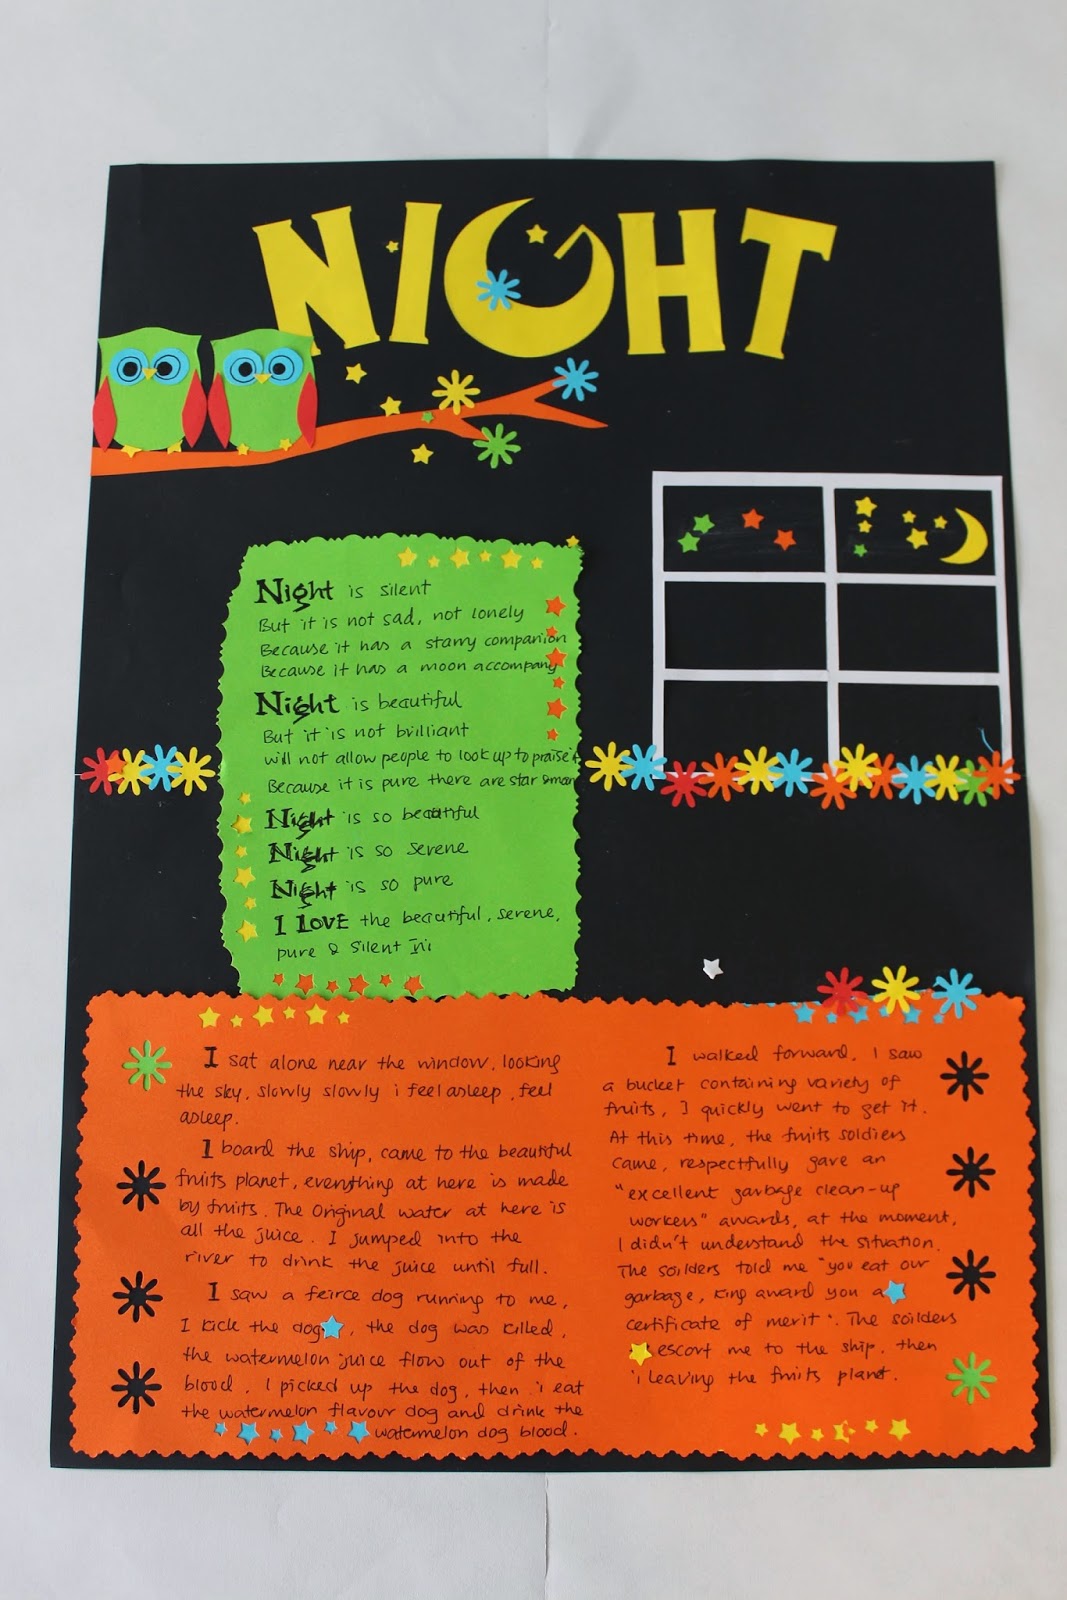 NIGHT
Night is silent
But it is not sad, not lonely
Because it has a starry companion
Because it has a moon accompany
Night is beautiful
But it is not brilliant
will not allow people to look up to praise it
Because it is pure there are star
Night is so beautiful
Night is so serene
Night is so pure
I LOVE the beautiful, serene,
pure & silent Ini
I sat alone near the window, looking
the sky, slowly slowly i feel asleep, feel
asleep.
I board the ship, came to the beautiful
fruits planet, everything at here is made
by fruits. The original water at here is
all the juice. I jumped into the
river to drink the juice until full.
I saw a feirce dog running to me,
I kick the dog, the dog was killed,
the watermelon juice flow out of the
blood. I picked up the dog, then i eat
the watermelon flavour dog and drink the
watermelon dog blood.
I walked forward, I saw
a bucket containing variety of
fruits, I quickly went to get it.
At this time, the fruits soldiers
came, respectfully gave an
"excellent garbage clean-up
workers" awards, at the moment,
I didn't understand the situation.
The soilders told me "you eat our
garbage, king award you a
certificate of merit". The soilders
escort me to the ship, then
i leaving the fruits planet.